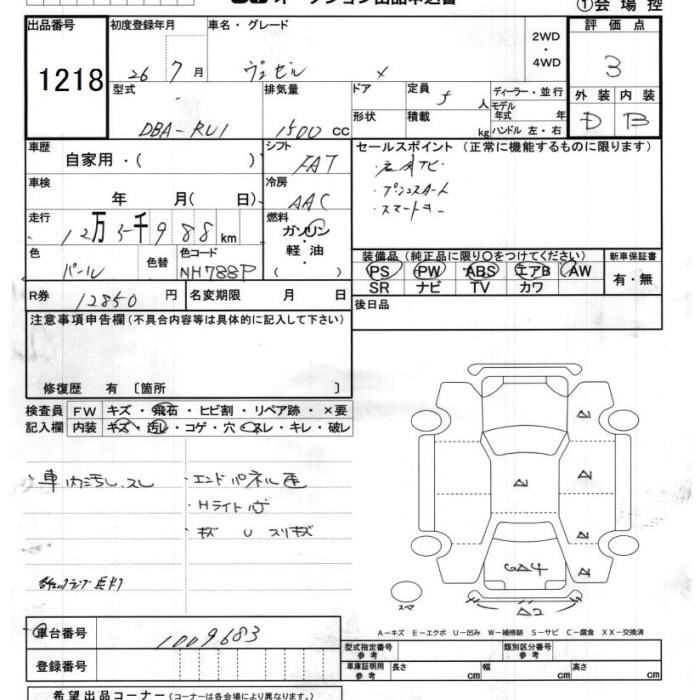 オークション出品申込書
①会場控
出品番号 初度登録年月 車名・グレード 2WD・4WD 評価点
1218
26年7月 ヴェゼル X 3
型式 排気量 ドア 定員 5人 ディーラー・並行 外装 内装
形状 積載 kg モデル年式 年式 ハンドル 左・右
DBA-RU1 1500 cc D B
車歴 シフト セールスポイント (正常に機能するものに限ります)
自家用・( ) FAT
・プッシュスタート
・スマートキー
車検 年 月( 日) 冷房 AAC
走行 12万5千988km 燃料 ガソリン・軽油・( )
色 パール 色替 色コード NH788P
装備品 (純正品に限り〇をつけてください) 新車保証書
PS PW ABS エアB AW 有・無
SR ナビ TV カワ
R券 12850円 名変期限 月 日 後日品
注意事項申告欄 (不具合内容等は具体的に記入して下さい)
修復歴 有 〔箇所 〕
検査員 FW キズ・飛石・ヒビ割・リペア跡・×要
記入欄 内装 キズ・汚レ・コゲ・穴・スレ・キレ・破レ
・車内汚し、スレ ・エンドパネル
・Hライト
・キズ U スリキズ
チェックランプ点灯
A1
A1 A1
A1
GA4 A1
スペア A2
A－キズ E－エクボ U－凹み W－補修跡 S－サビ C－腐食 XX－交換済
車台番号 1009683
型式指定番号 参考 類別区分番号 参考
登録番号 車庫証明用 参考 長さ cm 幅 cm 高さ cm
希望出品コーナー (コーナーは各会場により異なります)